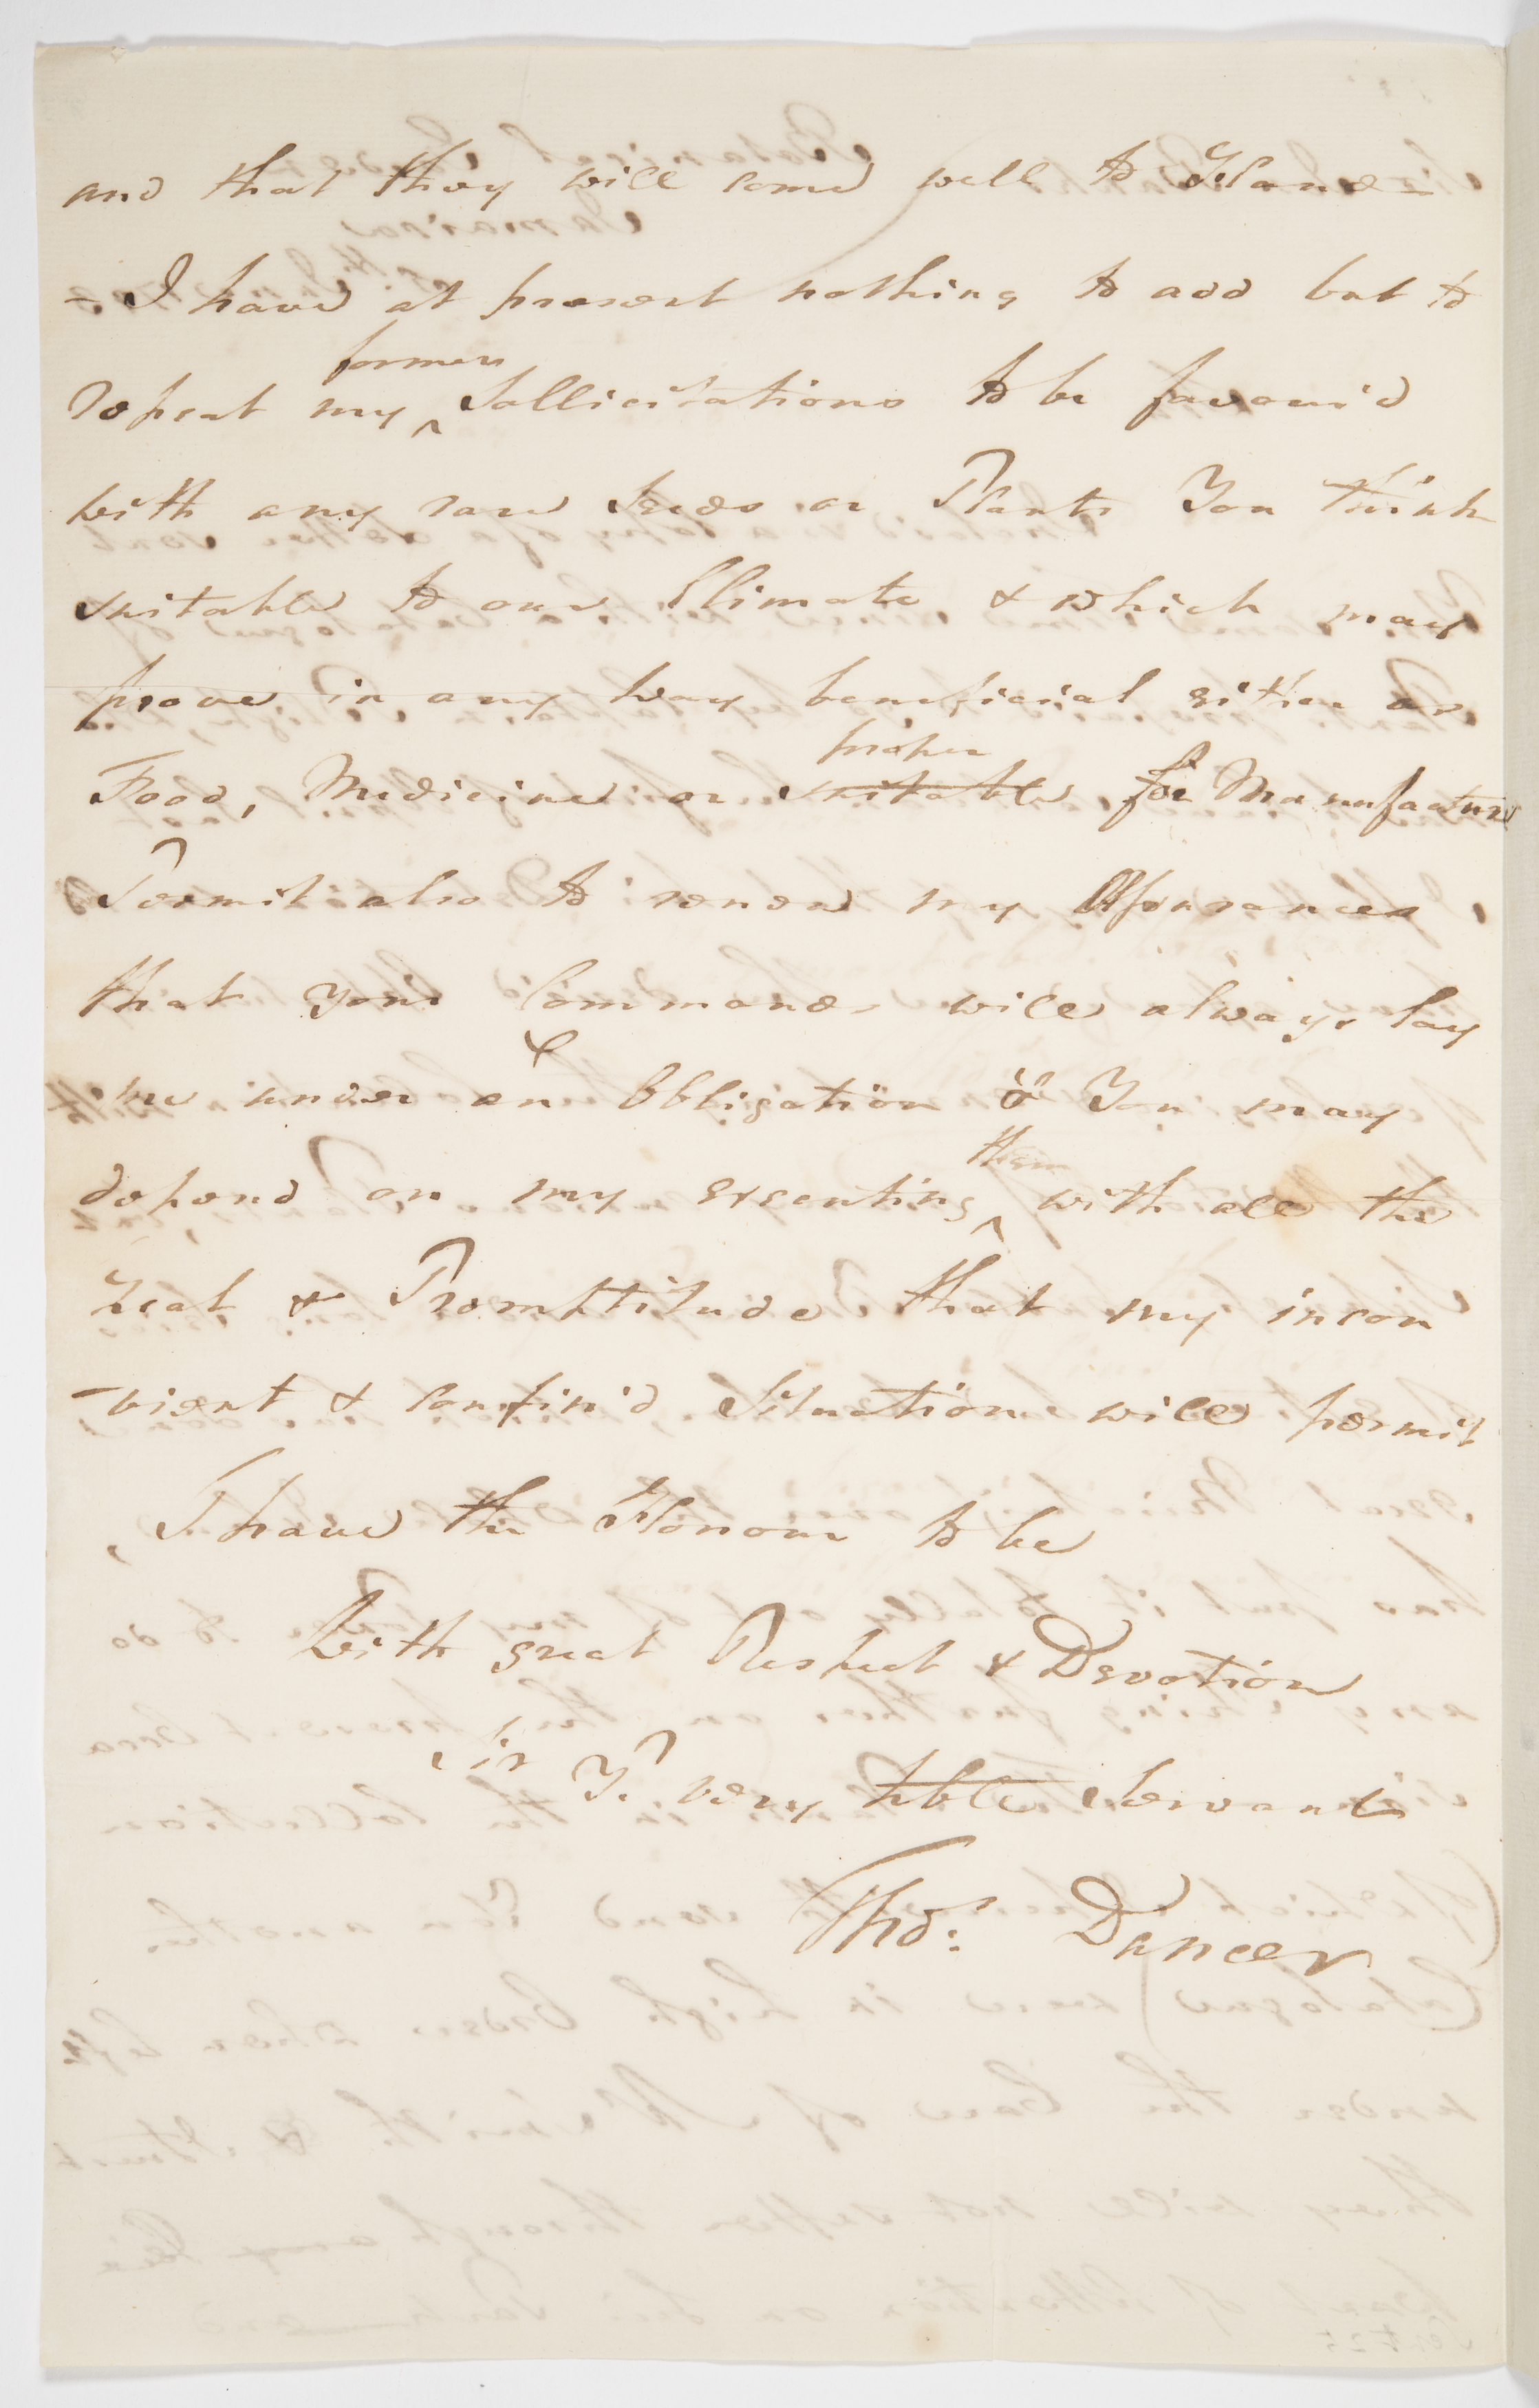 and that they will come well to Hand –
– I have at present nothing to add but to
repeat my ^former Sollicitations to be favour'd
with any rare Seeds or Plants You think
suitable to our Climate & which may
prove in any way beneficial either as
Food, Medicine or suitable proper for Manufacture
Permit also to renew my Assurances
that your Commands will always lay
me under an Obligation & You may
depend on my executing ^them with all the
Zeal & Promptitude that my incon
-vient & confin'd Situation will permit
I have the Honour to be
With great Respect & Devotion
Sir
Yr. very hble Servant
Thos: Dancer